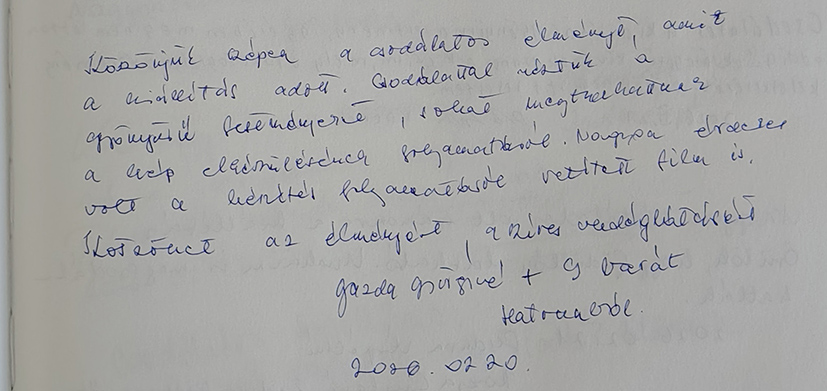 Köszönjük szépen a csodálatos élményt, amit
a kiállítás adott. Csodálattal néztük a
gyönyörű festményeket, sokat megtudhattunk
a kép elkészülésének folyamatáról. Nagyon érdekes
volt a készítés folyamatáról vetített film is.
Köszönet az élményért, a szíves vendéglátásért
Gazda Györgyiné + 9 barát
2020.02.20.